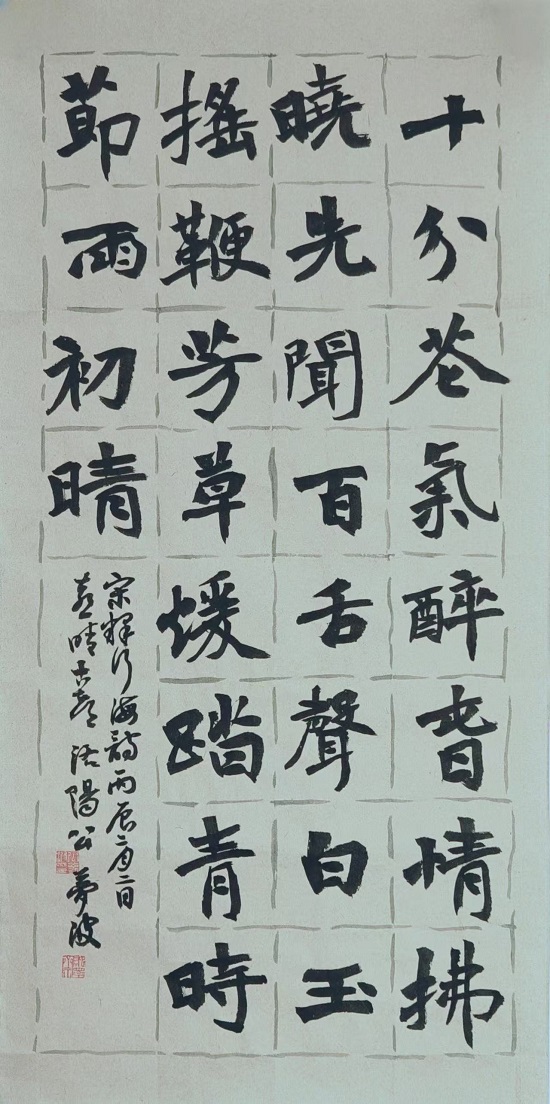 十分花氣醉旾情拂
曉先聞百舌聲白玉
搖鞭芳草煖踏青時
節雨初晴
宋釋行海詩丙辰二月二日
喜晴古都洛陽公夢波